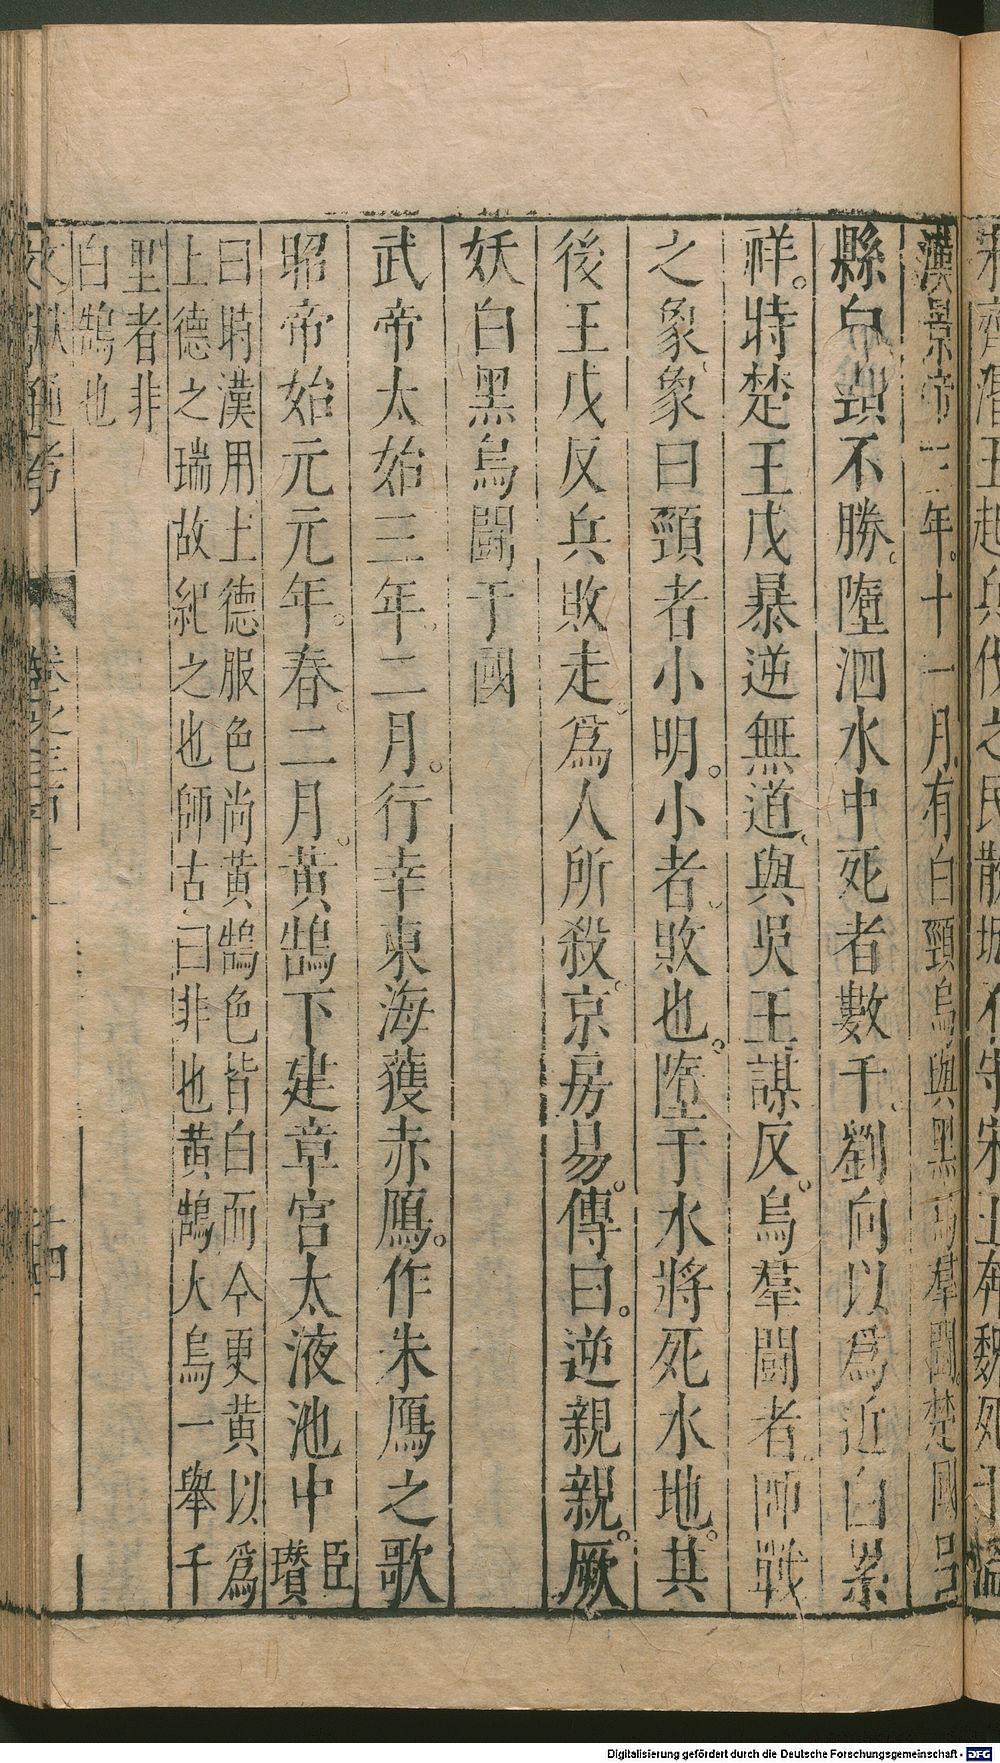 漢景帝三年。十一月有白頸烏與黑烏羣鬬。楚國呂
縣白頸不勝。墮泗水中死者數千。劉向以爲近白黑
祥。時楚王戊暴逆無道、與吳王謀反。烏羣鬬者師戰
之象、象曰頸者小明。小者敗也。墮于水將死水地。其
後王戊反兵敗走。爲人所殺。京房易。傳曰。逆親親。厥
妖白黑烏鬬于國
武帝太始三年。二月。行幸東海獲赤鴈。作朱鴈之歌
昭帝始元元年。春。二月。黃鵠下建章宮太液池中臣瓚
曰時漢用土德服色尚黃鵠色皆白而今更黃以爲
土德之瑞故紀之也師古曰非也黃鵠大鳥一舉千
里者非
白鵠也
文獻通考
卷之三百十一
十四
Digitalisierung gefördert durch die Deutsche Forschungsgemeinschaft - DFG